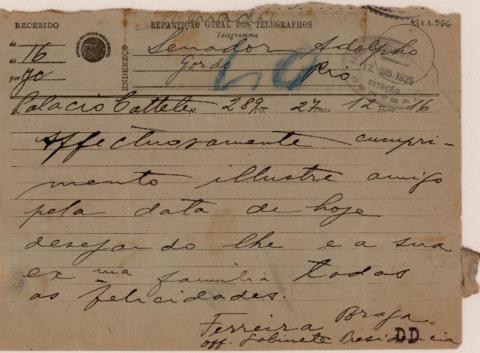 RECEBIDO
REPARTIÇÃO GERAL DOS TELEGRAPHOS
Telegramma
de
as 16
por
ENDEREÇO
Senador Adolpho
Gordo Rio
12 1925
ESTAÇÃO
Palacio Cattete N. 289 27 12 Hora 16
Affectuosamente cumpri-
mento illustre amigo
pela data de hoje
desejando lhe e a sua
exma familia todas
as felicidades.
Ferreira Braga
off. Gabinete Presidencia
DD